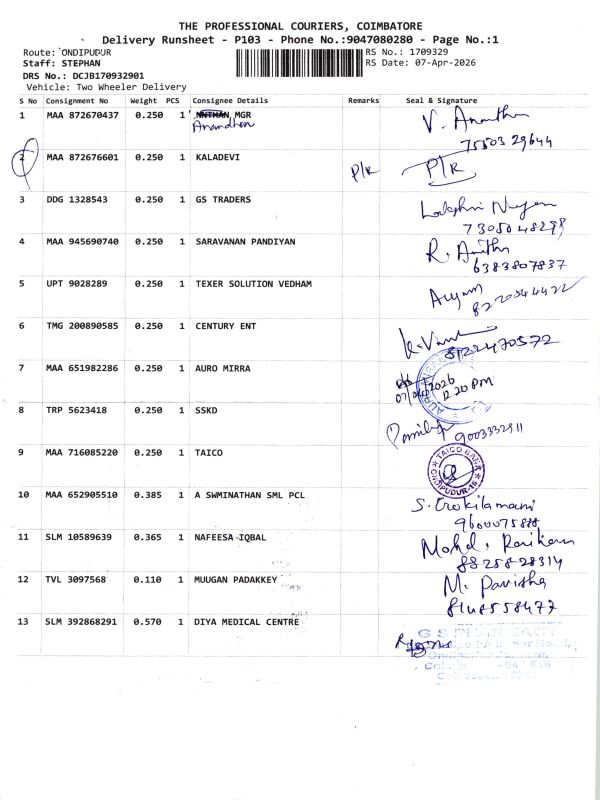 THE PROFESSIONAL COURIERS, COIMBATORE
Delivery Runsheet - P103 - Phone No.:9047080280 - Page No.:1
Route: ONDIPUDUR
RS No.: 1709329
Staff: STEPHAN
RS Date: 07-Apr-2026
DRS No.: DCJB170932901
Vehicle: Two Wheeler Delivery
S No Consignment No Weight PCS Consignee Details Remarks Seal & Signature
1 MAA 872670437 0.250 1 MGR V. Anantha
Anandhan 75503 29644
2 MAA 872676601 0.250 1 KALADEVI P/R P/R
3 DDG 1328543 0.250 1 GS TRADERS
7305048298
4 MAA 945690740 0.250 1 SARAVANAN PANDIYAN R.
6383807837
5 UPT 9028289 0.250 1 TEXER SOLUTION VEDHAM
6 TMG 200890585 0.250 1 CENTURY ENT
8122470572
7 MAA 651982286 0.250 1 AURO MIRRA
07/04/2026
12.20 PM
8 TRP 5623418 0.250 1 SSKD
9003332911
9 MAA 716085220 0.250 1 TAICO
TAICO BANK
ONDIPUDUR-16
10 MAA 652905510 0.385 1 A SWMINATHAN SML PCL S. Crokilamani
9600075888
11 SLM 10589639 0.365 1 NAFEESA IQBAL Mohd.
8825828314
12 TVL 3097568 0.110 1 MUUGAN PADAKKEY M. Pavisha
8148558477
13 SLM 392868291 0.570 1 DIYA MEDICAL CENTRE
G S PHARMACY